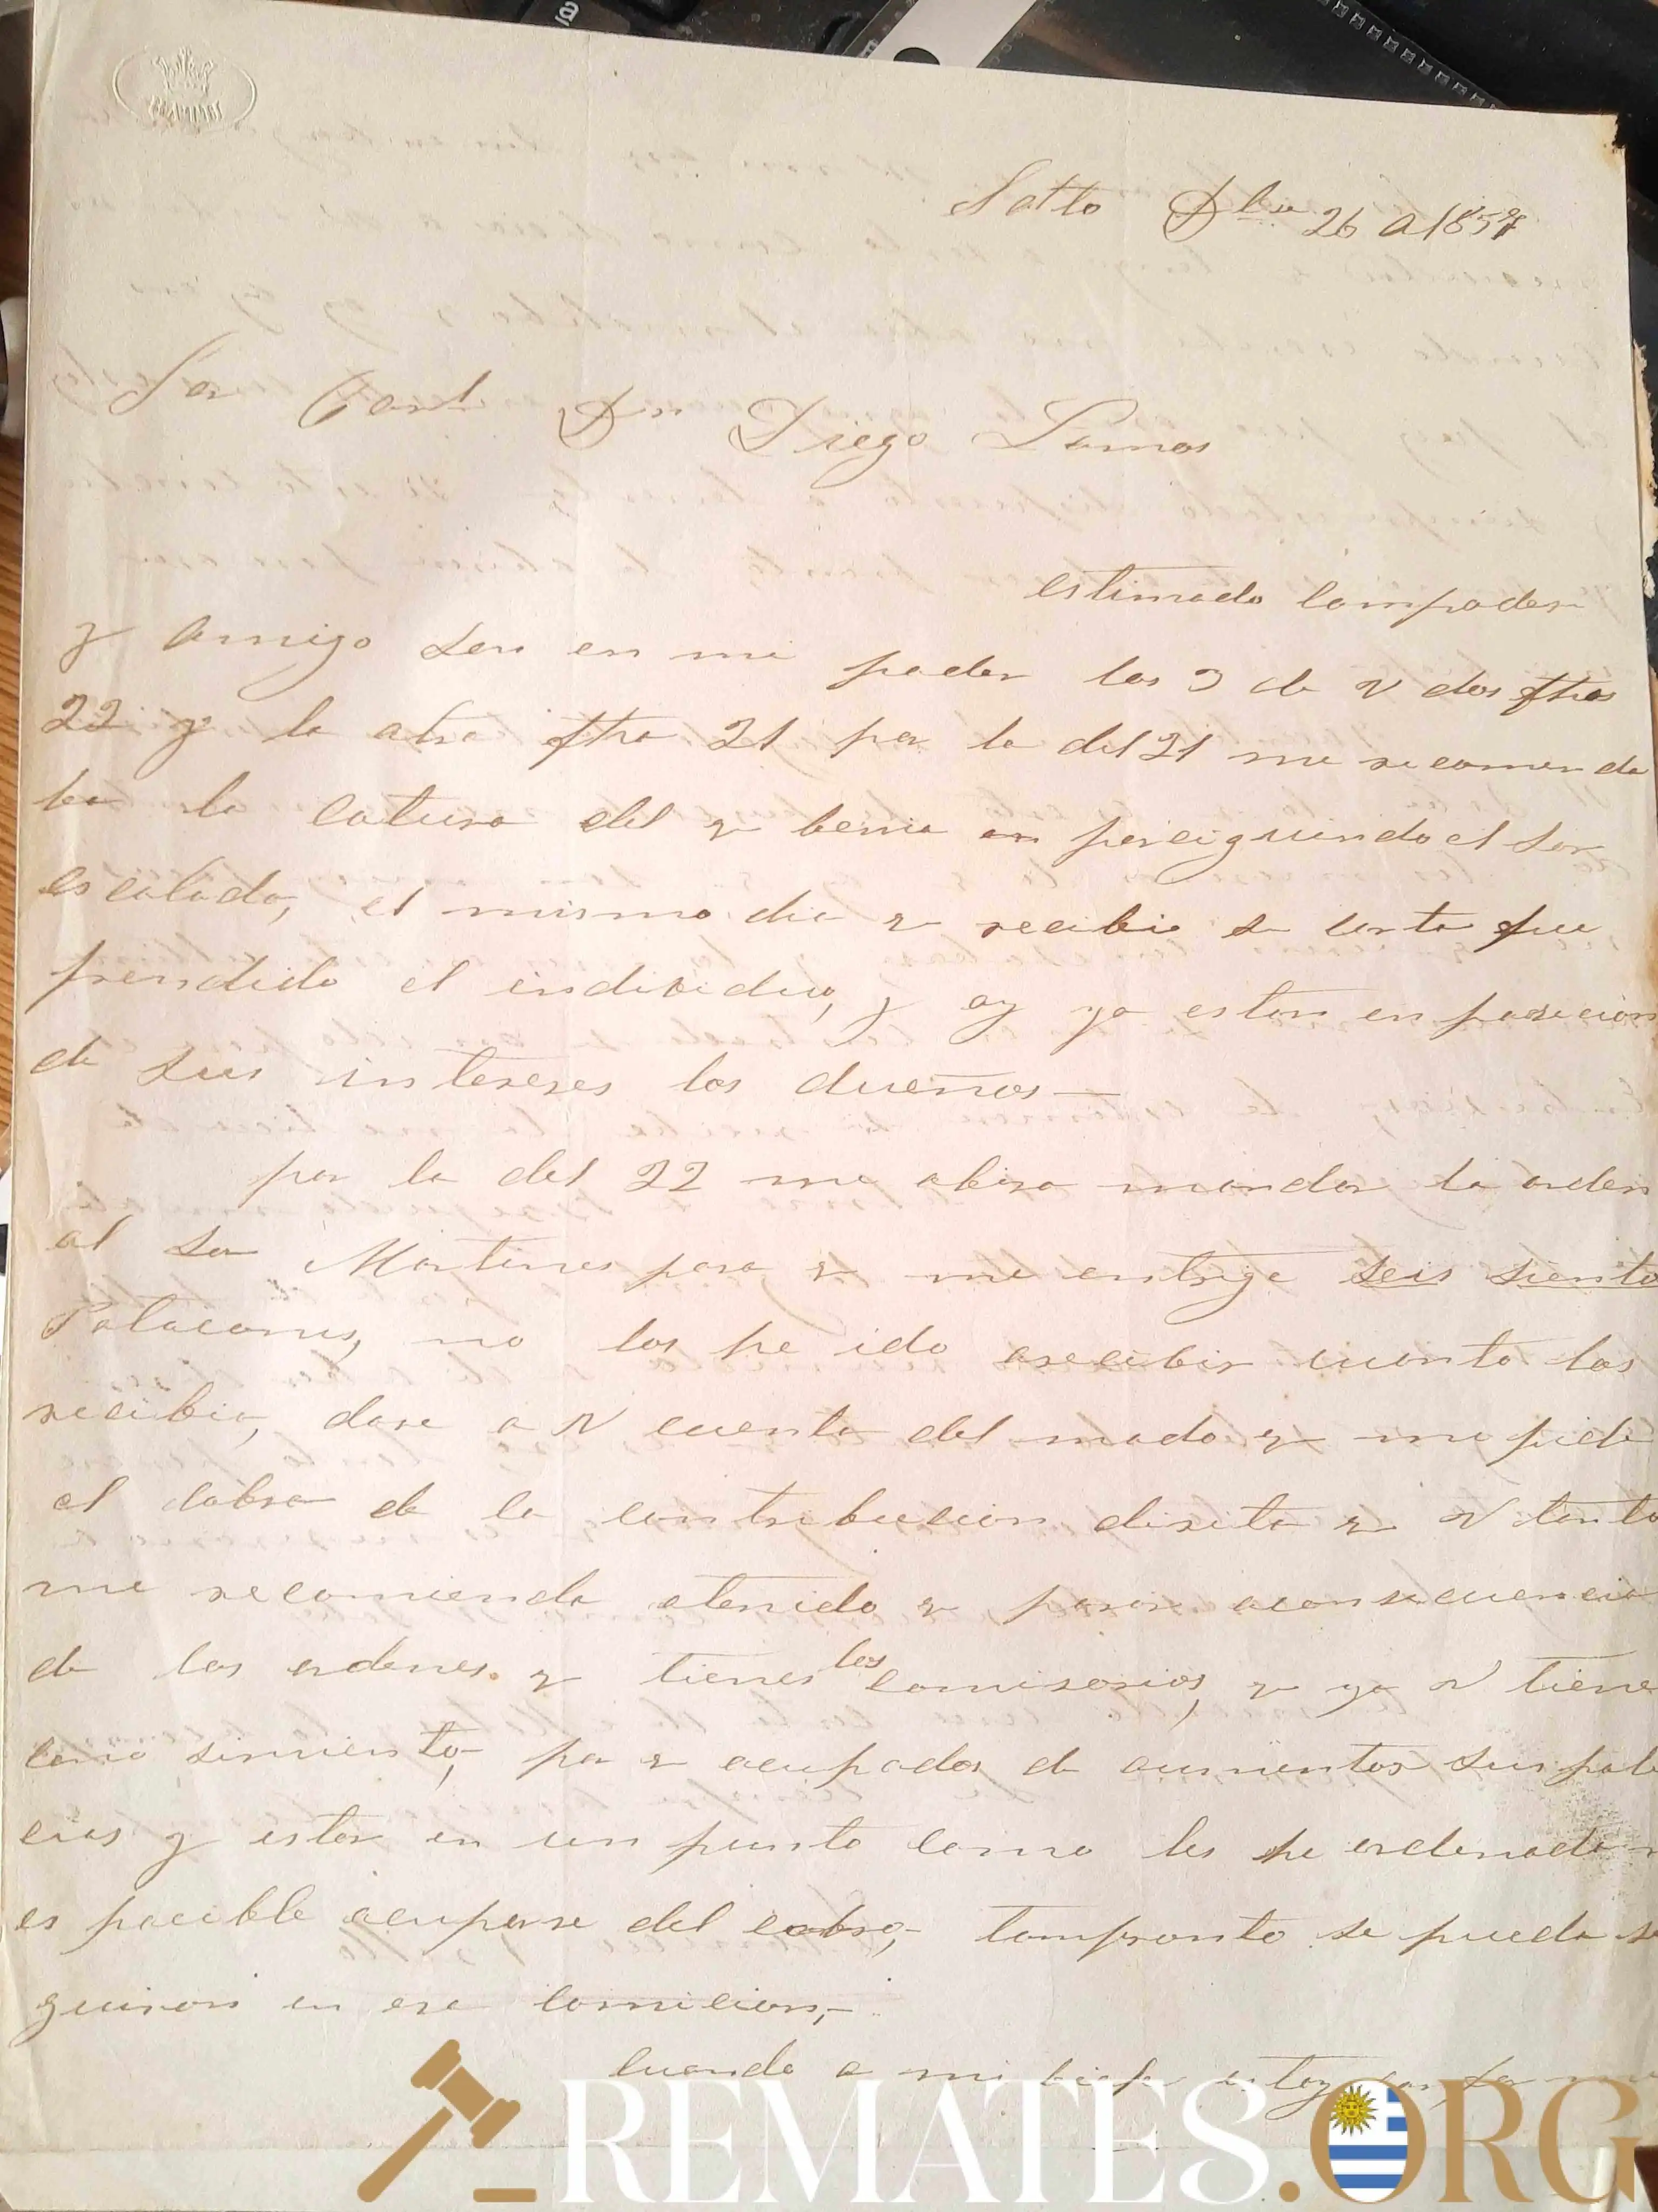 Salto Dbre 26 A 1857
Sor Corl Dn Diego Lamas
estimado compadre
y amigo son en mi poder las 3 de V dos fhas
22 y la otra fha 21 por la del 21 me recomenda
ba la catura del q benia en perciguiendo el Sor
escalada, el mismo dia q recibi su carta fue
prendido el individuo, y oy ya estan en posecion
de sus intereses los dueños—
por la del 22 me abisa mandar la orden
al Sor Martines para q me entrege seis siento
Patacones, no los he ido arecibir cuanto los
reciba, dare a V cuenta del modo q me pide
el cobro de la contribucion direta q V tanto
me recomienda atenido q parar aconsecuencia
de las ordenes q tienes los comisarios, q ya V tiene
conosimiento, por q ocupados de aumentar sus poli
cias y estar en un punto como les he ordenado n
es pocible ocuparse del cobro, tampronto se pueda se
guiran en ese comicion,—
cuando a mi biaje estoy con
REMATES.ORG